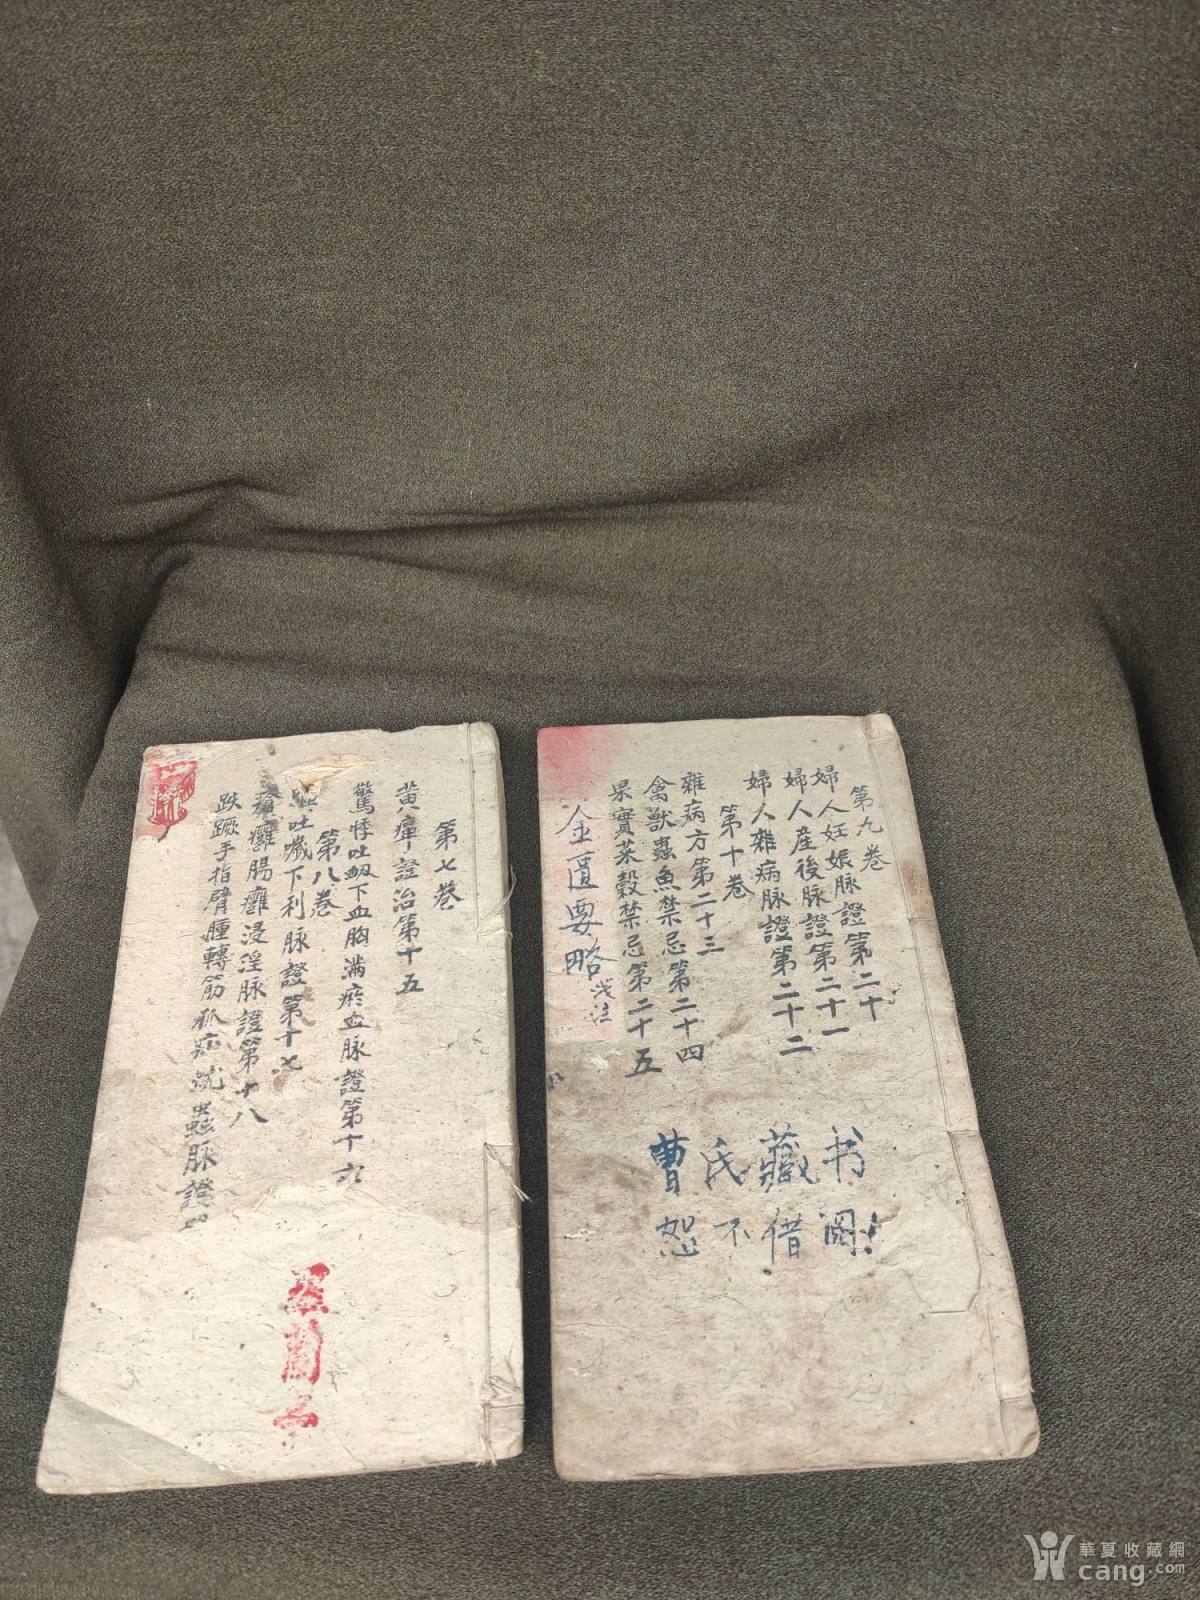 第九卷
婦人妊娠脉證第二十
婦人産後脉證第二十一
婦人雜病脉證第二十二
第十卷
雜病方第二十三
禽獸蟲魚禁忌第二十四
果實菜穀禁忌第二十五
金匱要略浅注
曹氏藏书
恕不借阅!
第七卷
黄癉證治第十五
驚悸吐衂下血胸满瘀血脉證第十六
第八卷
吐噦下利脉證第十七
瘡癰腸癰浸淫脉證第十八
趺蹶手指臂腫轉筋狐疝蚘蟲脉證
蘭
華夏收藏網
cang.com